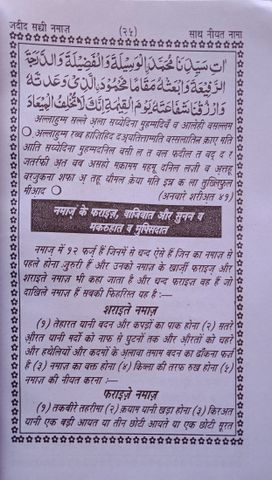 जदीद सच्ची नमाज़ (२५) साथ नीयत नामा
اٰتِ سَيِّدَنَا مُحَمَّدَ اِلْوَسِيْلَةَ وَالْفَضِيْلَةَ وَالدَّرَجَةَ
الرَّفِيْعَةَ وَابْعَثْهُ مَقَامًا مَّحْمُوْدَ اِلَّذِىْ وَعَدْتَّهٗ
وَارْزُقْنَا شَفَاعَتَهٗ يَوْمَ الْقِيٰمَةِ اِنَّكَ لَا تُخْلِفُ الْمِيْعَادَ
अल्लाहुम्म सल्ले अला सय्यिदेना मुहम्मदिवँ व आलेही वसल्लम
○ अल्लाहुम्म रब्ब हाज़िहिद द्अवतित्ताम्मति वस्सलातिल क़ाए मति
आति सय्यिदेना मुहम्मदनिल वसी ल त वल फदील त वद् द र
जतर्रफी अत वब असहो मक़ामम महमू दनिल लज़ी व अत्तहू
वरज़ुक़ना शफा अ तहू यौमल क़ेया मति इन्न क ला तुख़्लिफुल
मीआद ○ (अनवारे शरीअत ४१)
नमाज़ के फराइज़, वाजिबात और सुनन व
मकरुहात व मुफ्सिदात
नमाज़ में १२ फर्ज़ हैं जिनमें से चन्द ऐसे हैं जिन का नमाज़ से
पहले होना ज़ुरुरी हैं और उनको नमाज़ के ख़ार्जी फराइज़ और
शराइते नमाज़ भी कहा जाता है और चन्द फराइज़ वह हैं जो
दाख़िले नमाज़ हैं सबकी फिहरिस्त यह है :—
शराइते नमाज़
(१) तेहारत यानी बदन और कपड़ों का पाक होना (२) सतरे
औरत यानी मर्दों को नाफ से घुटनों तक और औरतों को चहरे
और हथेलियों और क़दमों के अलावा तमाम बदन का ढकिना फर्ज़
है (३) नमाज़ का वक़्त होना (४) क़िब्ला की तरफ रुख़ होना (५)
नमाज़ की नीयत करना :—
फराइज़े नमाज़
(१) तकबीरे तहरीमा (२) क़याम यानी खड़ा होना (३) क़िरअत
यानी एक बड़ी आयत या तीन छोटी आयते या एक छोटी सूरत